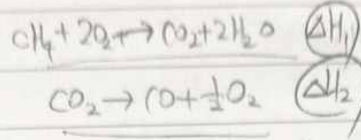 CH₄ + 2O₂ → CO₂ + 2H₂O ΔH₁
CO₂ → CO + ½O₂ ΔH₂